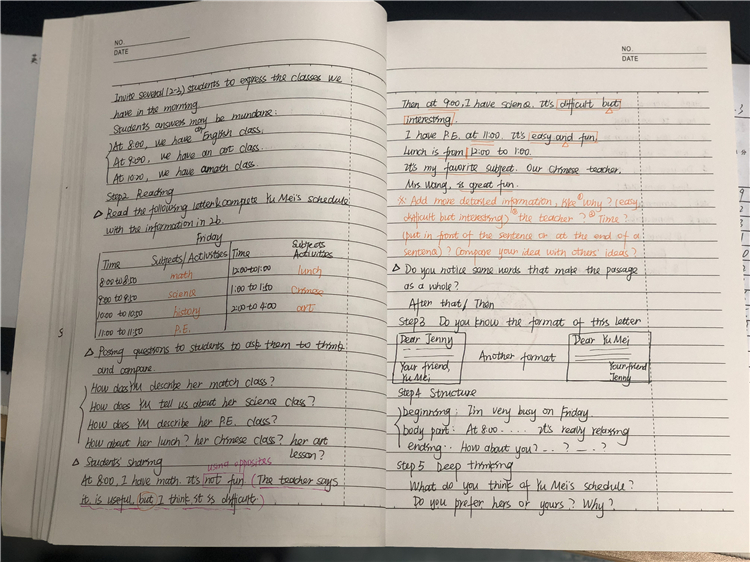 NO.
DATE
Invite several (2-3) students to express the classes we
have in the morning.
Students answers may be mundane:
At 8:00, we have an English class.
At 9:00, we have an art class.
At 10:20, we have a math class.
Step2 Reading
△ Read the following letter & compete Yu Mei's schedule
with the information in 2b.
Friday
Time Subjects/Activities Time Subjects Activities
8:00 to 8:50 math 12:00 to 1:00 lunch
9:00 to 9:50 science 1:00 to 1:50 Chinese
10:00 to 10:50 history 2:00 to 4:00 art
11:00 to 11:50 P.E.
△ Posing questions to students to ask them to think
and compare.
How does YM describe her match class?
How does YM tell us about her science class?
How does YM describe her P.E. class?
How about her lunch? her Chinese class? her art
lesson?
△ Students' sharing using opposites
At 8:00, I have math. It's not fun. (The teacher says
it is useful, but I think it is difficult.)
NO.
DATE
Then at 9:00, I have science. It's difficult but
interesting.
I have P.E. at 11:00. It's easy and fun.
Lunch is from 12:00 to 1:00.
It's my favorite subject. Our Chinese teacher,
Mrs Wang, is great fun.
※ Add more detailed information, like ① Why? (easy,
difficult but interesting) ② the teacher? ③ Time?
(put in front of the sentence or at the end of a
sentence)? Compare your idea with others' ideas?
△ Do you notice some words that make the passage
as a whole?
After that / Then
Step3 Do you know the format of this letter
Dear Jenny Dear Yu Mei
Another format
Your friend, Your friend
Yu Mei Jenny
Step4 Structure
beginning: I'm very busy on Friday.
body part: At 8:00 ...... It's really relaxing
ending: How about you? ...? ...?
Step 5 Deep thinking
What do you think of Yu Mei's schedule?
Do you prefer hers or yours? Why?